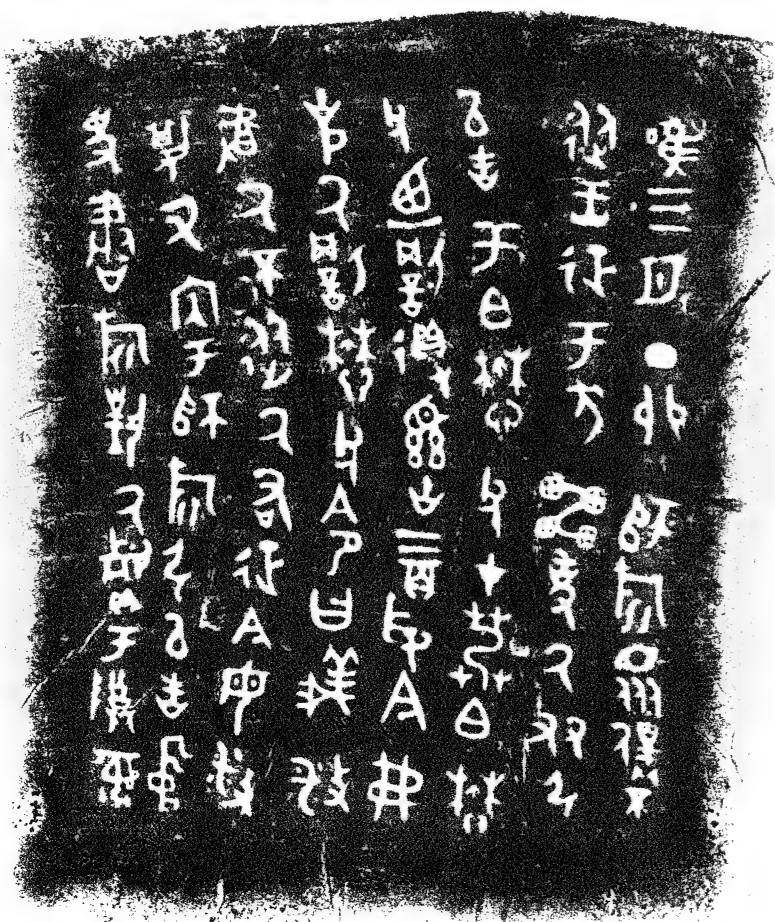 唯三月丁卯師旂眾僕不
從王征于方雷使厥友引
以告于白懋父才芳白懋
父迺罰得古三百寽今弗
克厥罰懋父令曰義播
厥不從厥右征今毋播
其又内于師旂引以告中
史書旂對厥于尊彝